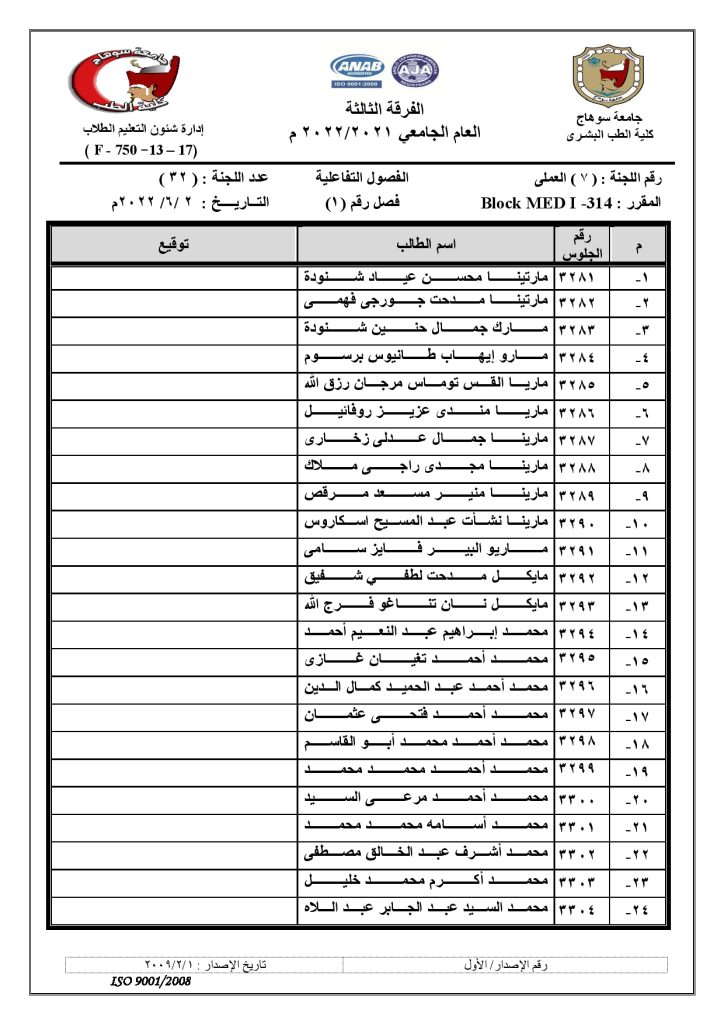 جامعة سوهاج
كلية الطب
ANAB
ACCREDITED
ISO 9001:2008
AJA
الفرقة الثالثة
العام الجامعي ٢٠٢٢/٢٠٢١ م
جامعة سوهاج
كلية الطب البشرى
إدارة شئون التعليم الطلاب
( F - 750 –13 – 17)
رقم اللجنة : ( ٧ ) العملى الفصول التفاعلية عدد اللجنة : ( ٣٢ )
المقرر : Block MED I -314 فصل رقم (١) التـاريـــخ : ٢ /٦/ ٢٠٢٢م
م رقم الجلوس اسم الطالب توقيع
١- ٣٢٨١ مارتينا محسن عياد شنودة
٢- ٣٢٨٢ مارتينا مدحت جورجى فهمى
٣- ٣٢٨٣ مارك جمال حنين شنودة
٤- ٣٢٨٤ مارو إيهاب طانيوس برسوم
٥- ٣٢٨٥ ماريا القس توماس مرجان رزق الله
٦- ٣٢٨٦ ماريا مندى عزيز روفائيل
٧- ٣٢٨٧ مارينا جمال عدلى زخارى
٨- ٣٢٨٨ مارينا مجدى راجى ملاك
٩- ٣٢٨٩ مارينا منير مسعد مرقص
١٠- ٣٢٩٠ مارينا نشأت عبد المسيح اسكاروس
١١- ٣٢٩١ ماريو البير فايز سامى
١٢- ٣٢٩٢ مايكل مدحت لطفي شفيق
١٣- ٣٢٩٣ مايكل نان تناغو فرج الله
١٤- ٣٢٩٤ محمد إبراهيم عبد النعيم أحمد
١٥- ٣٢٩٥ محمد أحمد تغيان غازى
١٦- ٣٢٩٦ محمد أحمد عبد الحميد كمال الدين
١٧- ٣٢٩٧ محمد أحمد فتحى عثمان
١٨- ٣٢٩٨ محمد أحمد محمد أبو القاسم
١٩- ٣٢٩٩ محمد أحمد محمد محمد
٢٠- ٣٣٠٠ محمد أحمد مرعى السيد
٢١- ٣٣٠١ محمد أسامه محمد محمد
٢٢- ٣٣٠٢ محمد أشرف عبد الخالق مصطفى
٢٣- ٣٣٠٣ محمد أكرم محمد خليل
٢٤- ٣٣٠٤ محمد السيد عبد الجابر عبد اللاه
رقم الإصدار/ الأول تاريخ الإصدار : ٢٠٠٩/٢/١
ISO 9001/2008